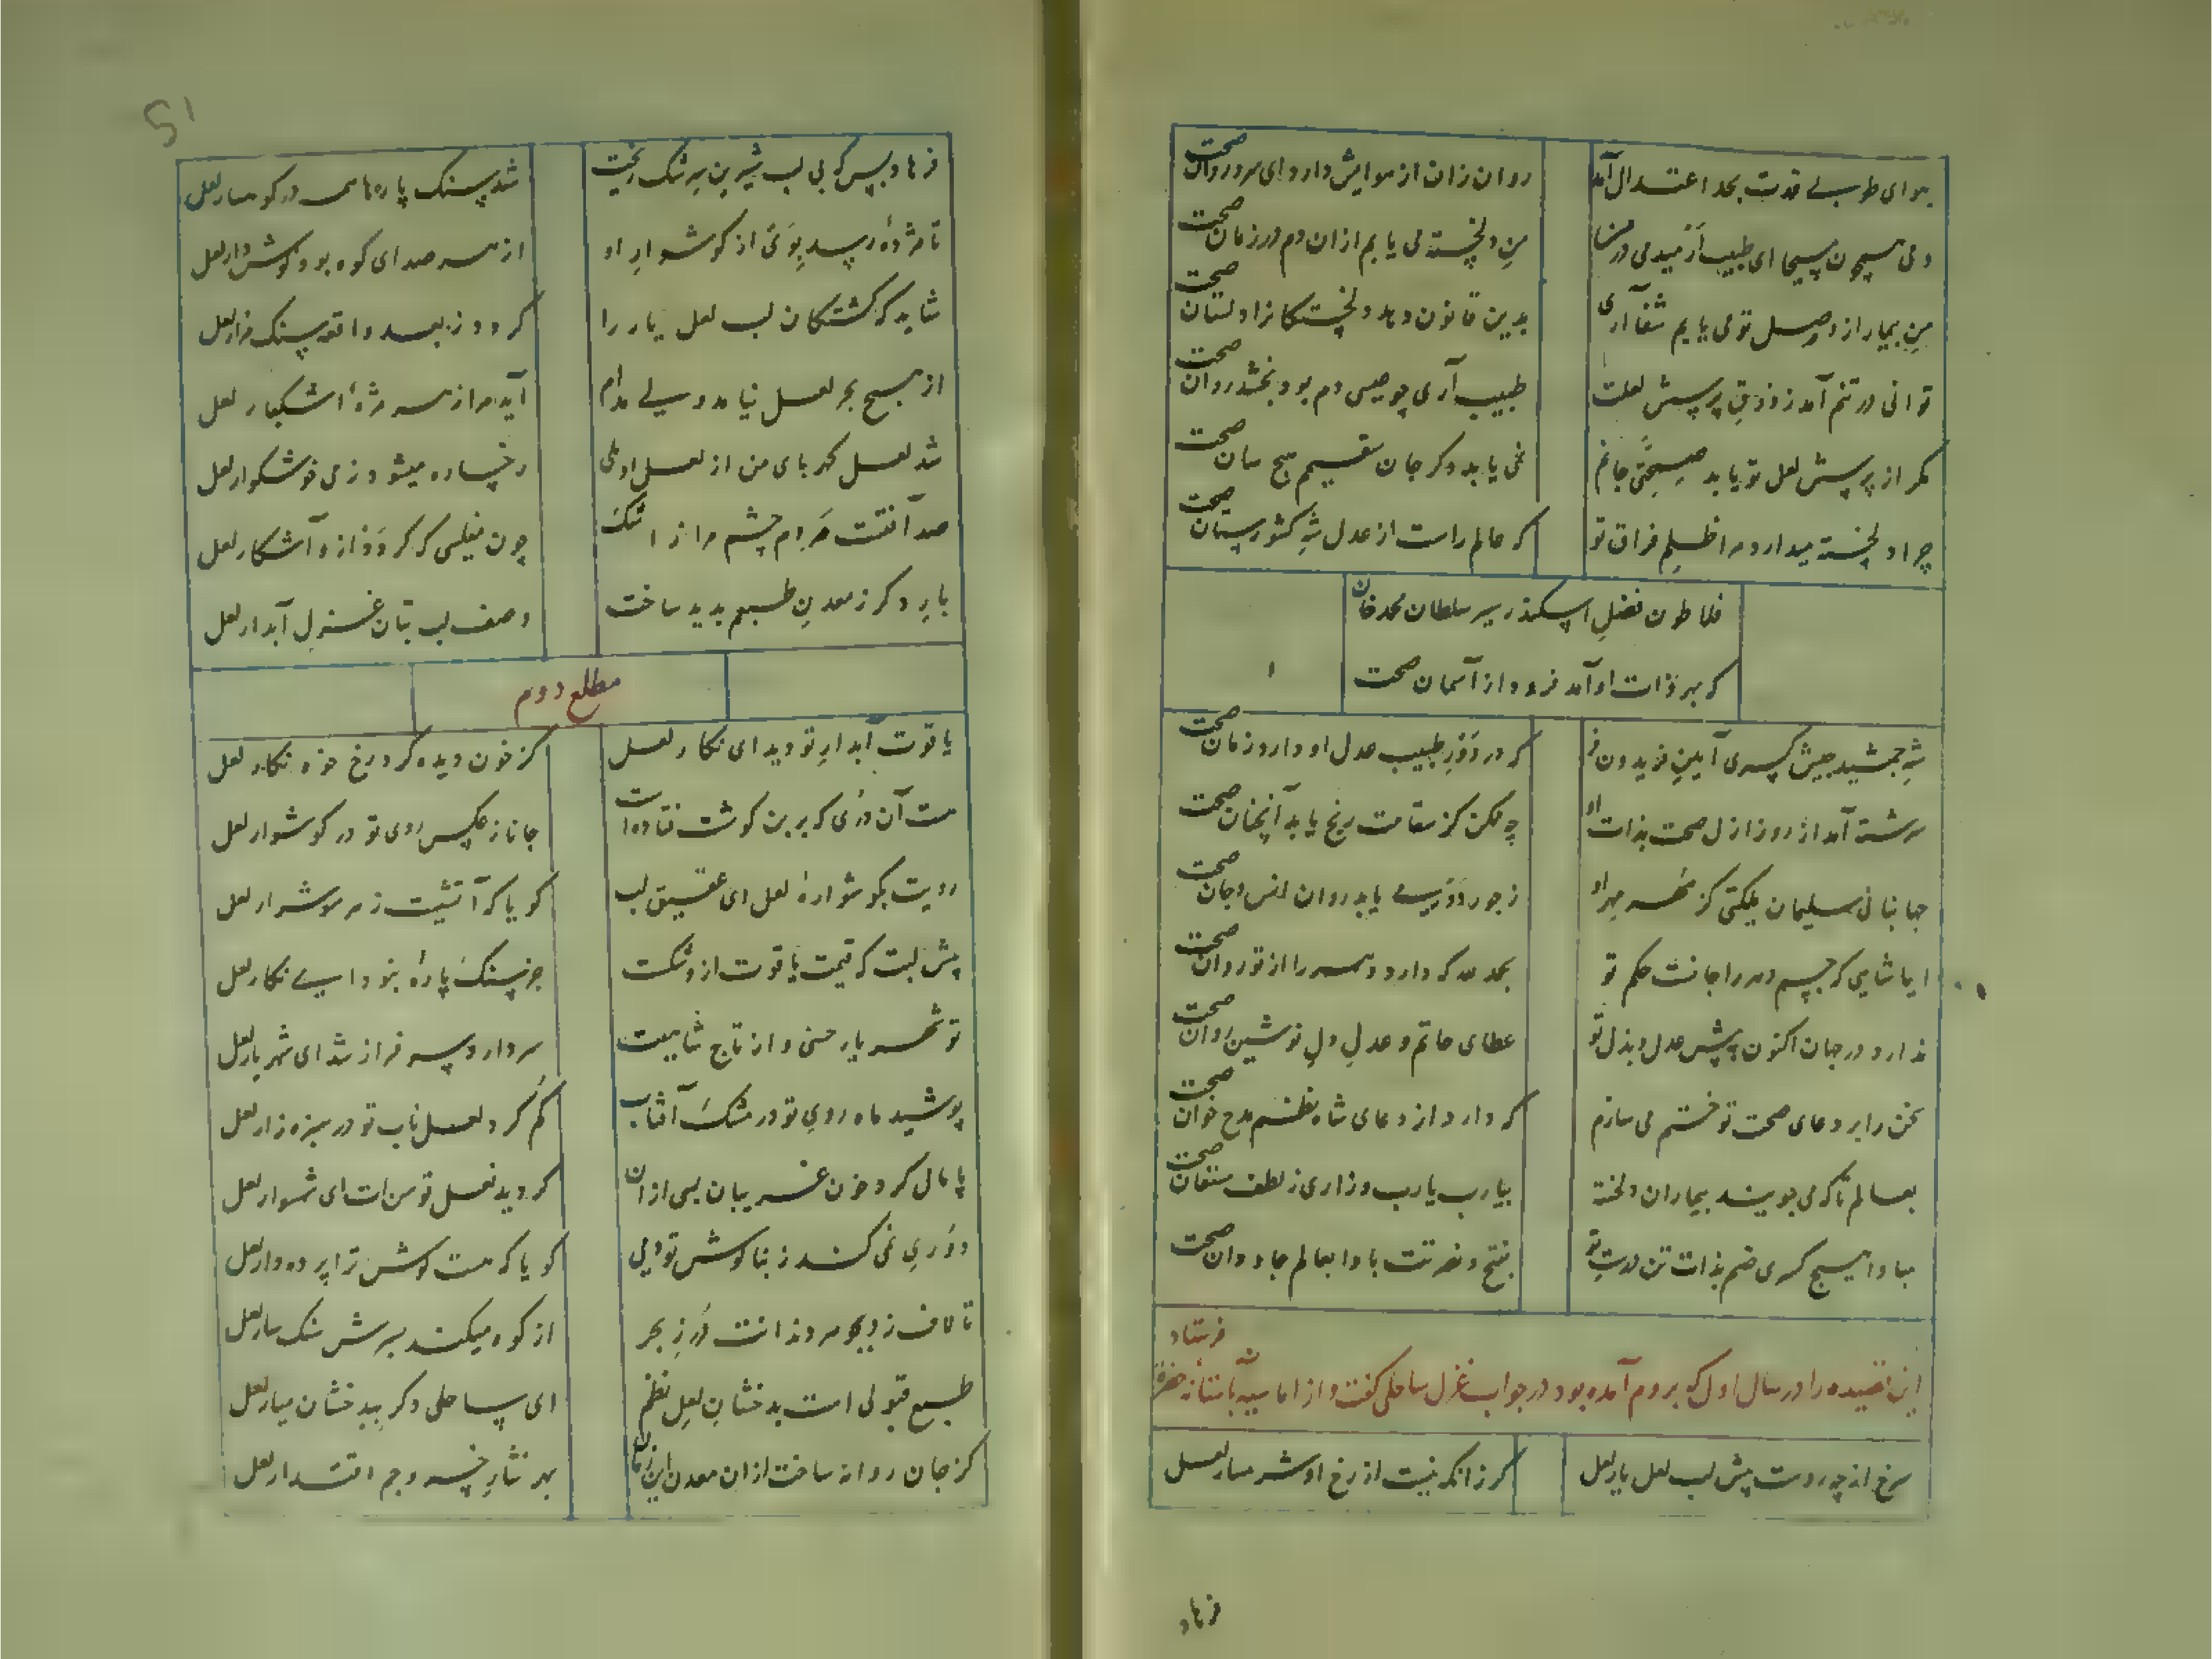 هوای طوبی قدت بحد اعتدال آمد
روان زان از هوایش دارد ای سرو روان صحت
من دلخسته می یابم ازان دم در زمان صحت
من بیمار از وصل تو می یابم شفا آری
بدین قانون دهد دلخستکانرا دلستان صحت
توانی در تنم آمد ز ذوق پرسش لعلت
طبیب آری چو عیسی دم بود بخشد روان صحت
مکر از پرسش لعل تو یابد صحتی جانم
نمی یابد دکر جان سقیم هیچ سان صحت
چرا دلخسته میدارد مرا ظلم فراق تو
که عالم راست از عدل شه کشورستان صحت
فلاطون فضل اسکندر سیر سلطان محمد خان
که بهر ذات او آمد فرود از آسمان صحت
شه جمشید جیش کسری آیین فریدون فر
که در دور طبیب عدل او دارد زمان صحت
سرشته آمد از روز ازل صحت بذات او
چه ممکن کز سقامت رنج یابد آنچنان صحت
ز جور دور می یابد روان انس و جان صحت
ایا شاهی که جسم دهر را جانست حکم تو
بحمد لله که دارد دهر را از تو روان صحت
ندارد در جهان اکنون پیش عدل و بذل تو
عطای حاتم و عدل دل نوشین روان صحت
سخن را بر دعای صحت تو ختم می سازم
که دارد از دعای شاه نظم مدح خوان صحت
بعالم تا که می جویند بیماران دلخسته
بیارب یارب و زاری ز لطف مستعان صحت
بفتح و نصرتت بادا بعالم جاودان صحت
این قصیده را در سال اول که بروم آمده بود در جواب غزل ساحلی کفت و از اماسیه بآستانه حضرة فرستاد
سرخ از چه روست پیش لب لعل یار لعل
کر زانکه نیست از رخ او شرمسار لعل
فرهاد
51
فرهاد بس که بی لب شیرین سرشک ریخت
شد سنک پارهای در کوهسار لعل
تا مژدهٔ رسد بوی از کوشوار او
از صدای کوه بود کوش دار لعل
شاید که کشتکان لب لعل یار را
کردد ز بعد واقعه سنک مزار لعل
از هیچ بحر لعل نیامد ولی مدام
آید مرا ز هر مژهٔ اشکبار لعل
شد لعل کهربای من از لعل او بلی
رخساره میشود ز می خوشکوار لعل
صد آفتست مردم چشم مرا ز اشک
چون مفلسی که کردد ازو آشکار لعل
بار دکر ز معدن طبعم پدید ساخت
وصف لب بتان غزل آبدار لعل
مطلع دوم
یاقوت آبدار تو دید ای نکار لعل
کز خون دیده کرد رخ خود نکار لعل
هست آن دری که بر بن کوشت فتاده است
جانا ز عکس روی تو در کوشوار لعل
رویت بکوشوارهٔ لعل ای عقیق لب
کویا که آتشیست ز هر سو شرار لعل
پیش لبت که قیمت یاقوت ازو شکست
جز سنک پارهٔ نبود ای نکار لعل
تو شهریار حسنی و از تاج شاهیت
سر دارد و سرفراز شد ای شهریار لعل
پوشید ماه روی تو در مشک آفتاب
کم کرد لعل ناب تو در سبزه زار لعل
پامال کرد خون غریبان بسی ازان
کردید نعل توسنت ای شهسوار لعل
دوری نمی کند ز بناکوش تو دمی
کویا که هست کوش ترا پرده دار لعل
از کوه میکند بسرش سنکسار لعل
طبع قبولی است بدخشان لعل نظم
ای ساحلی دکر ببدخشان میار لعل
کز جان روانه ساخت ازان معدن این زمان
بهر نثار خسرو جم اقتدار لعل